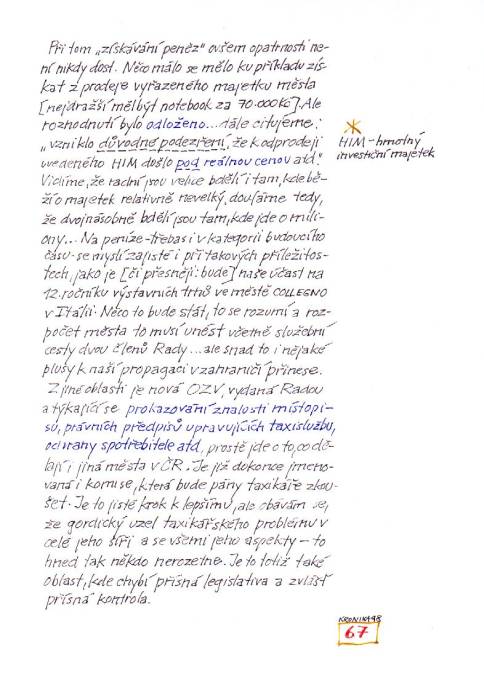 Při tom „získávání peněz" ovšem opatrnosti ne-
ní nikdy dost. Něco málo se mělo ku příkladu zís-
kat z prodeje vyřazeného majetku města
[nejdražší měl být notebook za 70.000 Kč]. Ale
rozhodnutí bylo odloženo... dále citujeme:
„vzniklo důvodné podezření, že k odprodeji
uvedeného HIM došlo pod reálnou cenou atd."
Vidíme, že radní jsou velice bdělí i tam, kde bě-
ží o majetek relativně nevelký, doufáme tedy,
že dvojnásobně bdělí jsou tam, kde jde o mili-
ony... Na peníze - třebas i v kategorii budoucího
času - se myslí zajisté i při takových příležitos-
tech, jako je [či přesněji: bude] naše účast na
12. ročníku výstavních trhů ve městě COLLEGNO
v Itálii. Něco to bude stát, to se rozumí a roz-
počet města to musí unést včetně služební
cesty dvou členů Rady ... ale snad to i nějaké
plusy k naší propagaci v zahraničí přinese.
Z jiné oblasti je nová OZV, vydaná Radou
a týkající se prokazování znalosti místopi-
su, právních předpisů upravujících taxislužbu,
ochrany spotřebitele atd, prostě jde o to, co dě-
lají i jiná města v ČR. Je již dokonce jmeno-
vaná i komise, která bude pány taxikáře zkou-
šet. Je to jistě krok k lepšímu, ale obávám se,
že gordický uzel taxikářského problému v
celé jeho šíři a se všemi jeho aspekty - to
hned tak někdo nerozetne. Je to totiž také
oblast, kde chybí přísná legislativa a zvlášť
přísná kontrola.
HIM - hmotný
investiční majetek
KRONIKA 98
67